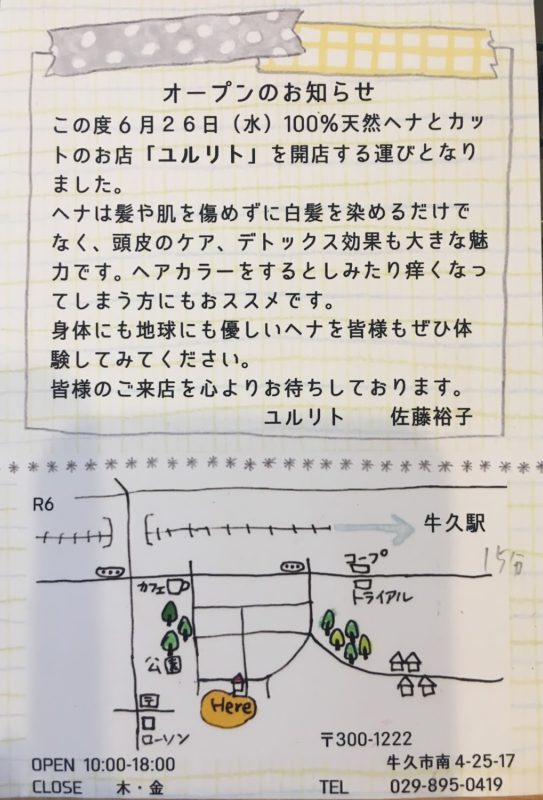 オープンのお知らせ
この度6月26日（水）100％天然ヘナとカッ
トのお店「ユルリト」を開店する運びとなり
ました。
ヘナは髪や肌を傷めずに白髪を染めるだけで
なく、頭皮のケア、デトックス効果も大きな魅
力です。ヘアカラーをするとしみたり痒くなっ
てしまう方にもおススメです。
身体にも地球にも優しいヘナを皆様もぜひ体
験してみてください。
皆様のご来店を心よりお待ちしております。
ユルリト　佐藤裕子
R6
牛久駅
コープ
15分
カフェ
トライアル
公園
Here
ローソン
〒300-1222
OPEN 10:00-18:00
牛久市南4-25-17
CLOSE 木・金
TEL 029-895-0419